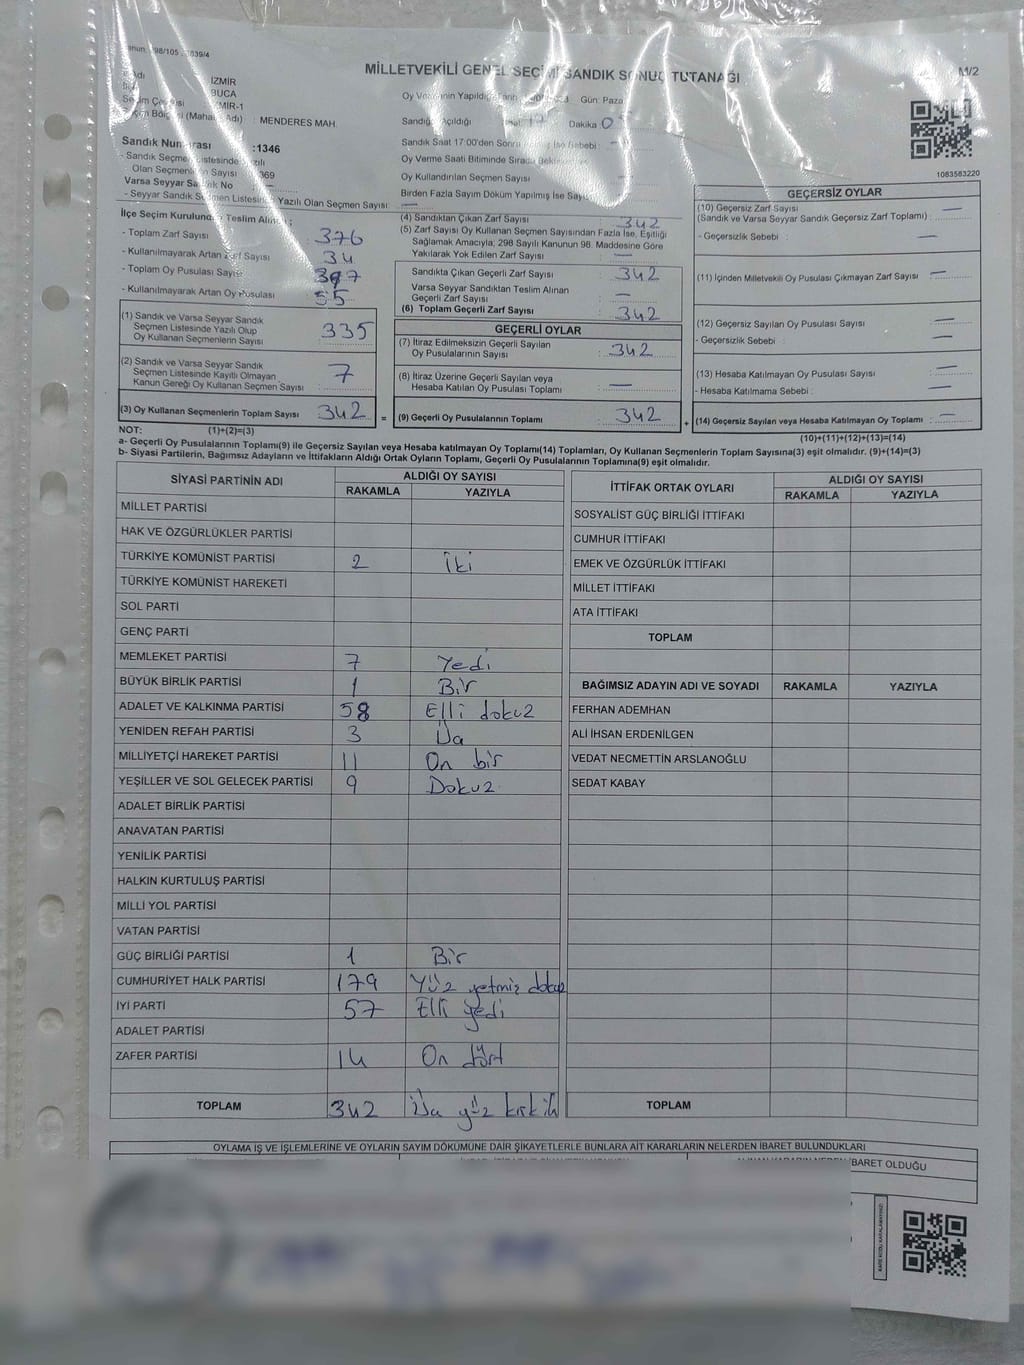 MİLLETVEKİLİ GENEL SEÇİMİ SANDIK SONUÇ TUTANAĞI
M/2
İZMİR
BUCA
: MENDERES MAH.
Gün: Pazar
Sandığın Açıldığı
Dakika
Sandık Numarası :1346
Sandık Saat 17:00'den Sonra
Oy Verme Saati Bitiminde Sırada
Olan Seçmen Sayısı 369
Oy Kullandırılan Seçmen Sayısı : —
Varsa Seyyar Sandık No
Birden Fazla Sayım Döküm Yapılmış İse Sayısı
- Seyyar Sandık Seçmen Listesinde Yazılı Olan Seçmen Sayısı: —
1083583220
İlçe Seçim Kurulundan Teslim Alınan :
- Toplam Zarf Sayısı 376
- Kullanılmayarak Artan Zarf Sayısı 34
- Toplam Oy Pusulası Sayısı
- Kullanılmayarak Artan Oy Pusulası 55
(1) Sandık ve Varsa Seyyar Sandık
Seçmen Listesinde Yazılı Olup
Oy Kullanan Seçmenlerin Sayısı : 335
(2) Sandık ve Varsa Seyyar Sandık
Seçmen Listesinde Kayıtlı Olmayan
Kanun Gereği Oy Kullanan Seçmen Sayısı : 7
(3) Oy Kullanan Seçmenlerin Toplam Sayısı : 342 =
(4) Sandıktan Çıkan Zarf Sayısı 342
(5) Zarf Sayısı Oy Kullanan Seçmen Sayısından Fazla İse, Eşitliği
Sağlamak Amacıyla; 298 Sayılı Kanunun 98. Maddesine Göre
Yakılarak Yok Edilen Zarf Sayısı : —
Sandıkta Çıkan Geçerli Zarf Sayısı : 342
Varsa Seyyar Sandıktan Teslim Alınan
Geçerli Zarf Sayısı : —
(6) Toplam Geçerli Zarf Sayısı : 342
GEÇERLİ OYLAR
(7) İtiraz Edilmeksizin Geçerli Sayılan
Oy Pusulalarının Sayısı : 342
(8) İtiraz Üzerine Geçerli Sayılan veya
Hesaba Katılan Oy Pusulası Toplamı : —
(9) Geçerli Oy Pusulalarının Toplamı : 342 +
GEÇERSİZ OYLAR
(10) Geçersiz Zarf Sayısı —
(Sandık ve Varsa Seyyar Sandık Geçersiz Zarf Toplamı) :
- Geçersizlik Sebebi : —
(11) İçinden Milletvekili Oy Pusulası Çıkmayan Zarf Sayısı : —
(12) Geçersiz Sayılan Oy Pusulası Sayısı : —
- Geçersizlik Sebebi : —
(13) Hesaba Katılmayan Oy Pusulası Sayısı : —
- Hesaba Katılmama Sebebi : —
(14) Geçersiz Sayılan veya Hesaba Katılmayan Oy Toplamı : —
NOT: (1)+(2)=(3)
(10)+(11)+(12)+(13)=(14)
a- Geçerli Oy Pusulalarının Toplamı(9) ile Geçersiz Sayılan veya Hesaba katılmayan Oy Toplamı(14) Toplamları, Oy Kullanan Seçmenlerin Toplam Sayısına(3) eşit olmalıdır. (9)+(14)=(3)
b- Siyasi Partilerin, Bağımsız Adayların ve İttifakların Aldığı Ortak Oyların Toplamı, Geçerli Oy Pusulalarının Toplamına(9) eşit olmalıdır.
SİYASİ PARTİNİN ADI ALDIĞI OY SAYISI
RAKAMLA YAZIYLA
MİLLET PARTİSİ
HAK VE ÖZGÜRLÜKLER PARTİSİ
TÜRKİYE KOMÜNİST PARTİSİ 2 İki
TÜRKİYE KOMÜNİST HAREKETİ
SOL PARTİ
GENÇ PARTİ
MEMLEKET PARTİSİ 7 Yedi
BÜYÜK BİRLİK PARTİSİ 1 Bir
ADALET VE KALKINMA PARTİSİ 58 Elli dokuz
YENİDEN REFAH PARTİSİ 3 Üa
MİLLİYETÇİ HAREKET PARTİSİ 11 On bir
YEŞİLLER VE SOL GELECEK PARTİSİ 9 Dokuz
ADALET BİRLİK PARTİSİ
ANAVATAN PARTİSİ
YENİLİK PARTİSİ
HALKIN KURTULUŞ PARTİSİ
MİLLİ YOL PARTİSİ
VATAN PARTİSİ
GÜÇ BİRLİĞİ PARTİSİ 1 Bir
CUMHURİYET HALK PARTİSİ 179 Yüz yetmiş dokuz
İYİ PARTİ 57 Elli yedi
ADALET PARTİSİ
ZAFER PARTİSİ 14 On dört
TOPLAM 342 Üa yüz kırk iki
İTTİFAK ORTAK OYLARI ALDIĞI OY SAYISI
RAKAMLA YAZIYLA
SOSYALİST GÜÇ BİRLİĞİ İTTİFAKI
CUMHUR İTTİFAKI
EMEK VE ÖZGÜRLÜK İTTİFAKI
MİLLET İTTİFAKI
ATA İTTİFAKI
TOPLAM
BAĞIMSIZ ADAYIN ADI VE SOYADI RAKAMLA YAZIYLA
FERHAN ADEMHAN
ALİ İHSAN ERDENİLGEN
VEDAT NECMETTİN ARSLANOĞLU
SEDAT KABAY
TOPLAM
OYLAMA İŞ VE İŞLEMLERİNE VE OYLARIN SAYIM DÖKÜMÜNE DAİR ŞİKAYETLERLE BUNLARA AİT KARARLARIN NELERDEN İBARET BULUNDUKLARI
İBARET OLDUĞU